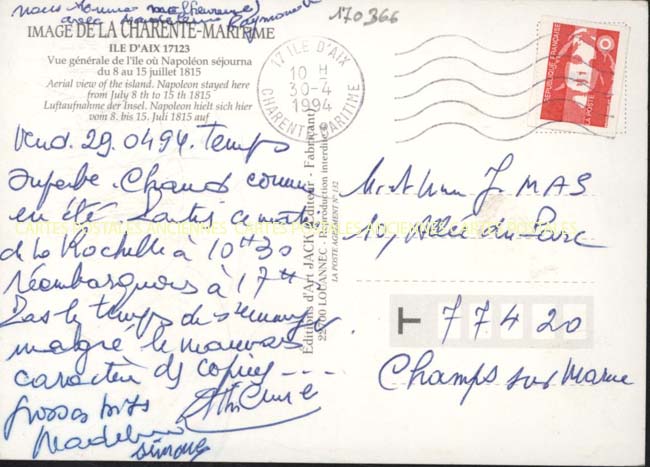 nous sommes malheureuses
avec Madeleine Raymonde
170366
IMAGE DE LA CHARENTE-MARITIME
ILE D'AIX 17123
Vue générale de l'île où Napoléon séjourna
du 8 au 15 juillet 1815
Aerial view of the island. Napoleon stayed here
from July 8 th to 15 th 1815
Luftaufnahme der Insel. Napoleon hielt sich hier
vom 8. bis 15. Juli 1815 auf
17 ILE D'AIX
10 H
30-4
1994
CHARENTE MARITIME
REPUBLIQUE FRANÇAISE
LA POSTE
Vend. 29.04.94. Temps
superbe. Chaud comme
en été. Partis ce matin
de la Rochelle à 10H30
réembarquons à 17H
Pas le temps de s'ennuyer
malgré le mauvais
caractère des copines ----
Grosses bises
Madeleine
Simone
Editions d'Art JACK (Editeur - Fabricant)
22700 LOUANNEC - Reproduction interdite
LA POSTE AGREMENT N°
CARTES POSTALES ANCIENNES
CARTES POSTALES ANCIENNES
Mr et Mme J. MAS
10, Allée du Parc
T 77420
Champs sur Marne